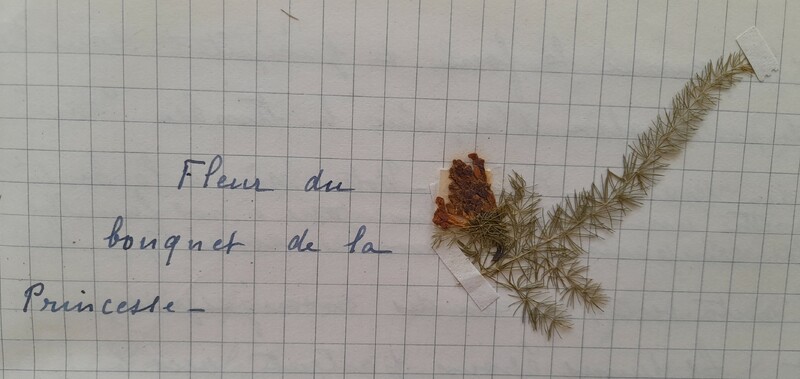 Fleur du
bouquet de la
Princesse -